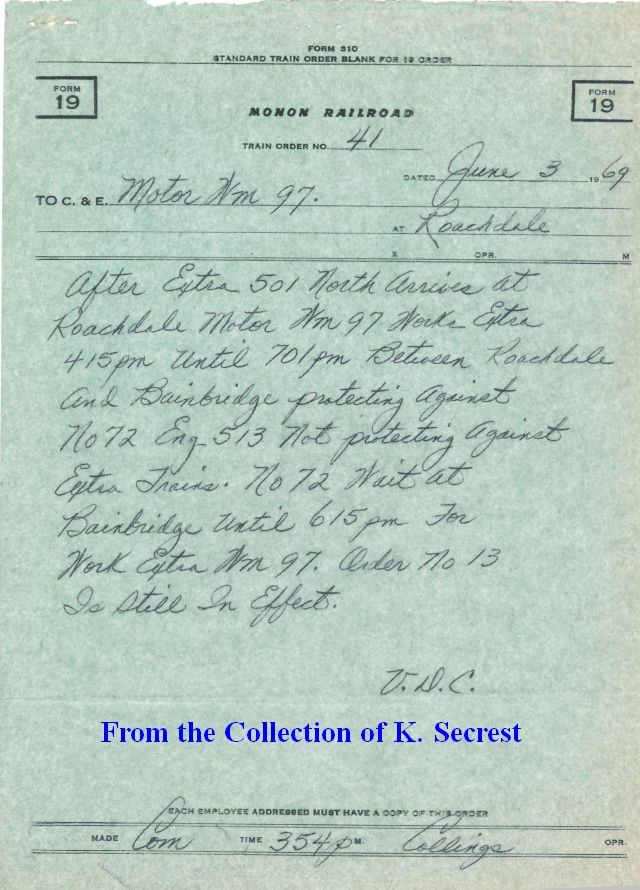 FORM 310
STANDARD TRAIN ORDER BLANK FOR 19 ORDER
FORM
19
FORM
19
MONON RAILROAD
TRAIN ORDER NO. 41
DATED June 3 1969
TO C. & E. Motor Wm 97.
AT Roachdale
X OPR. M
After Extra 501 North Arrives At
Roachdale Motor Wm 97 Works Extra
415pm Until 701pm Between Roachdale
And Bainbridge protecting Against
No 72 Eng 513 Not protecting Against
Extra Trains. No 72 Wait At
Bainbridge Until 615 pm For
Work Extra Wm 97. Order No 13
Is Still In Effect.
V.D.C.
From the Collection of K. Secrest
EACH EMPLOYEE ADDRESSED MUST HAVE A COPY OF THIS ORDER
MADE Com TIME 354p M. Collings OPR.